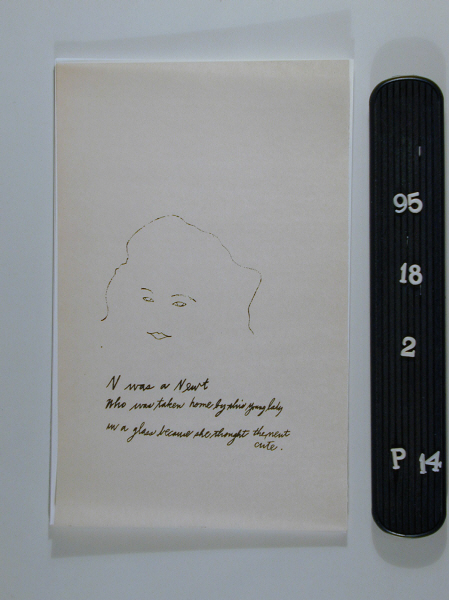 N was a Newt
who was taken home by this young lady
in a glass because she thought the newt
cute.
95
18
2
P 14